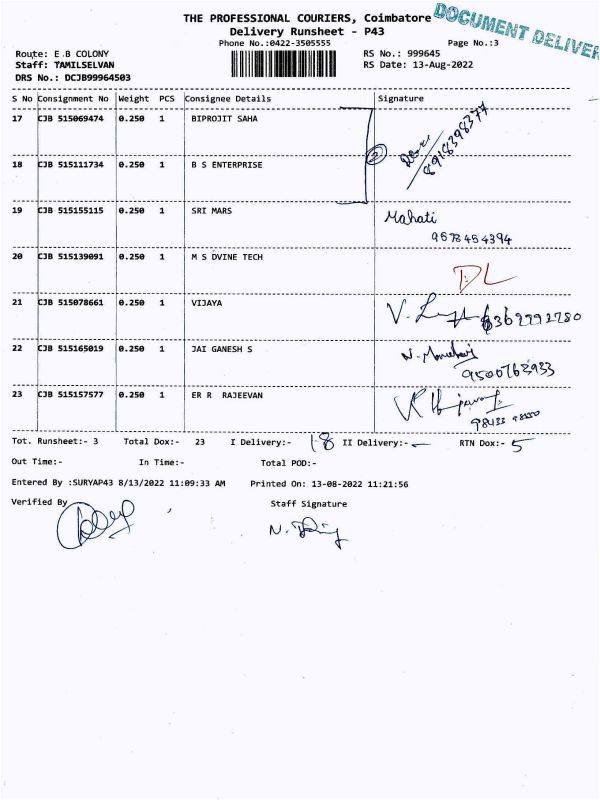 THE PROFESSIONAL COURIERS, Coimbatore
DOCUMENT DELIVER
Delivery Runsheet - P43
Phone No.:0422-3505555
Page No.:3
Route: E.B COLONY
RS No.: 999645
Staff: TAMILSELVAN
RS Date: 13-Aug-2022
DRS No.: DCJB99964503
S No Consignment No Weight PCS Consignee Details Signature
17 CJB 515069474 0.250 1 BIPROJIT SAHA
2
8918398377
18 CJB 515111734 0.250 1 B S ENTERPRISE
19 CJB 515155115 0.250 1 SRI MARS Mahati
9578454394
20 CJB 515139091 0.250 1 M S DVINE TECH
DL
21 CJB 515078661 0.250 1 VIJAYA
6369992780
22 CJB 515165019 0.250 1 JAI GANESH S
9500763933
23 CJB 515157577 0.250 1 ER R RAJEEVAN
Tot. Runsheet:- 3 Total Dox:- 23 I Delivery:- 18 II Delivery:- - RTN Dox:- 5
Out Time:- In Time:- Total POD:-
Entered By :SURYAP43 8/13/2022 11:09:33 AM Printed On: 13-08-2022 11:21:56
Verified By Staff Signature